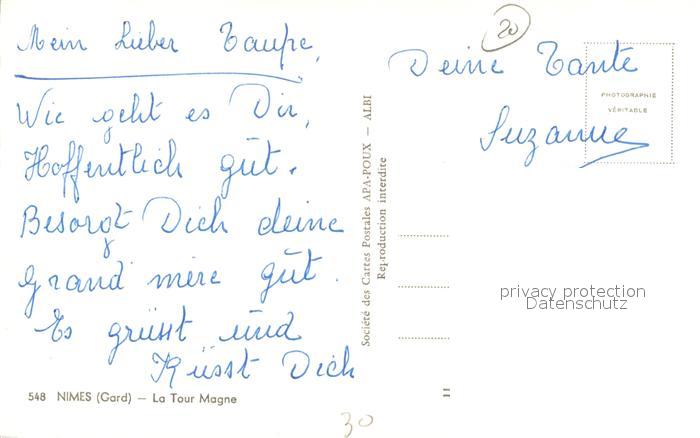 Mein Lieber Taupe,
Wie geht es Dir,
Hoffentlich gut.
Besorgt Dich deine
Grand mère gut.
Es grüsst und
Küsst Dich
548 NIMES (Gard) — La Tour Magne
Société des Cartes Postales APA-POUX — ALBI
Reproduction interdite
20
Deine Tante
Suzanne
PHOTOGRAPHIE
VÉRITABLE
privacy protection
Datenschutz
11
30